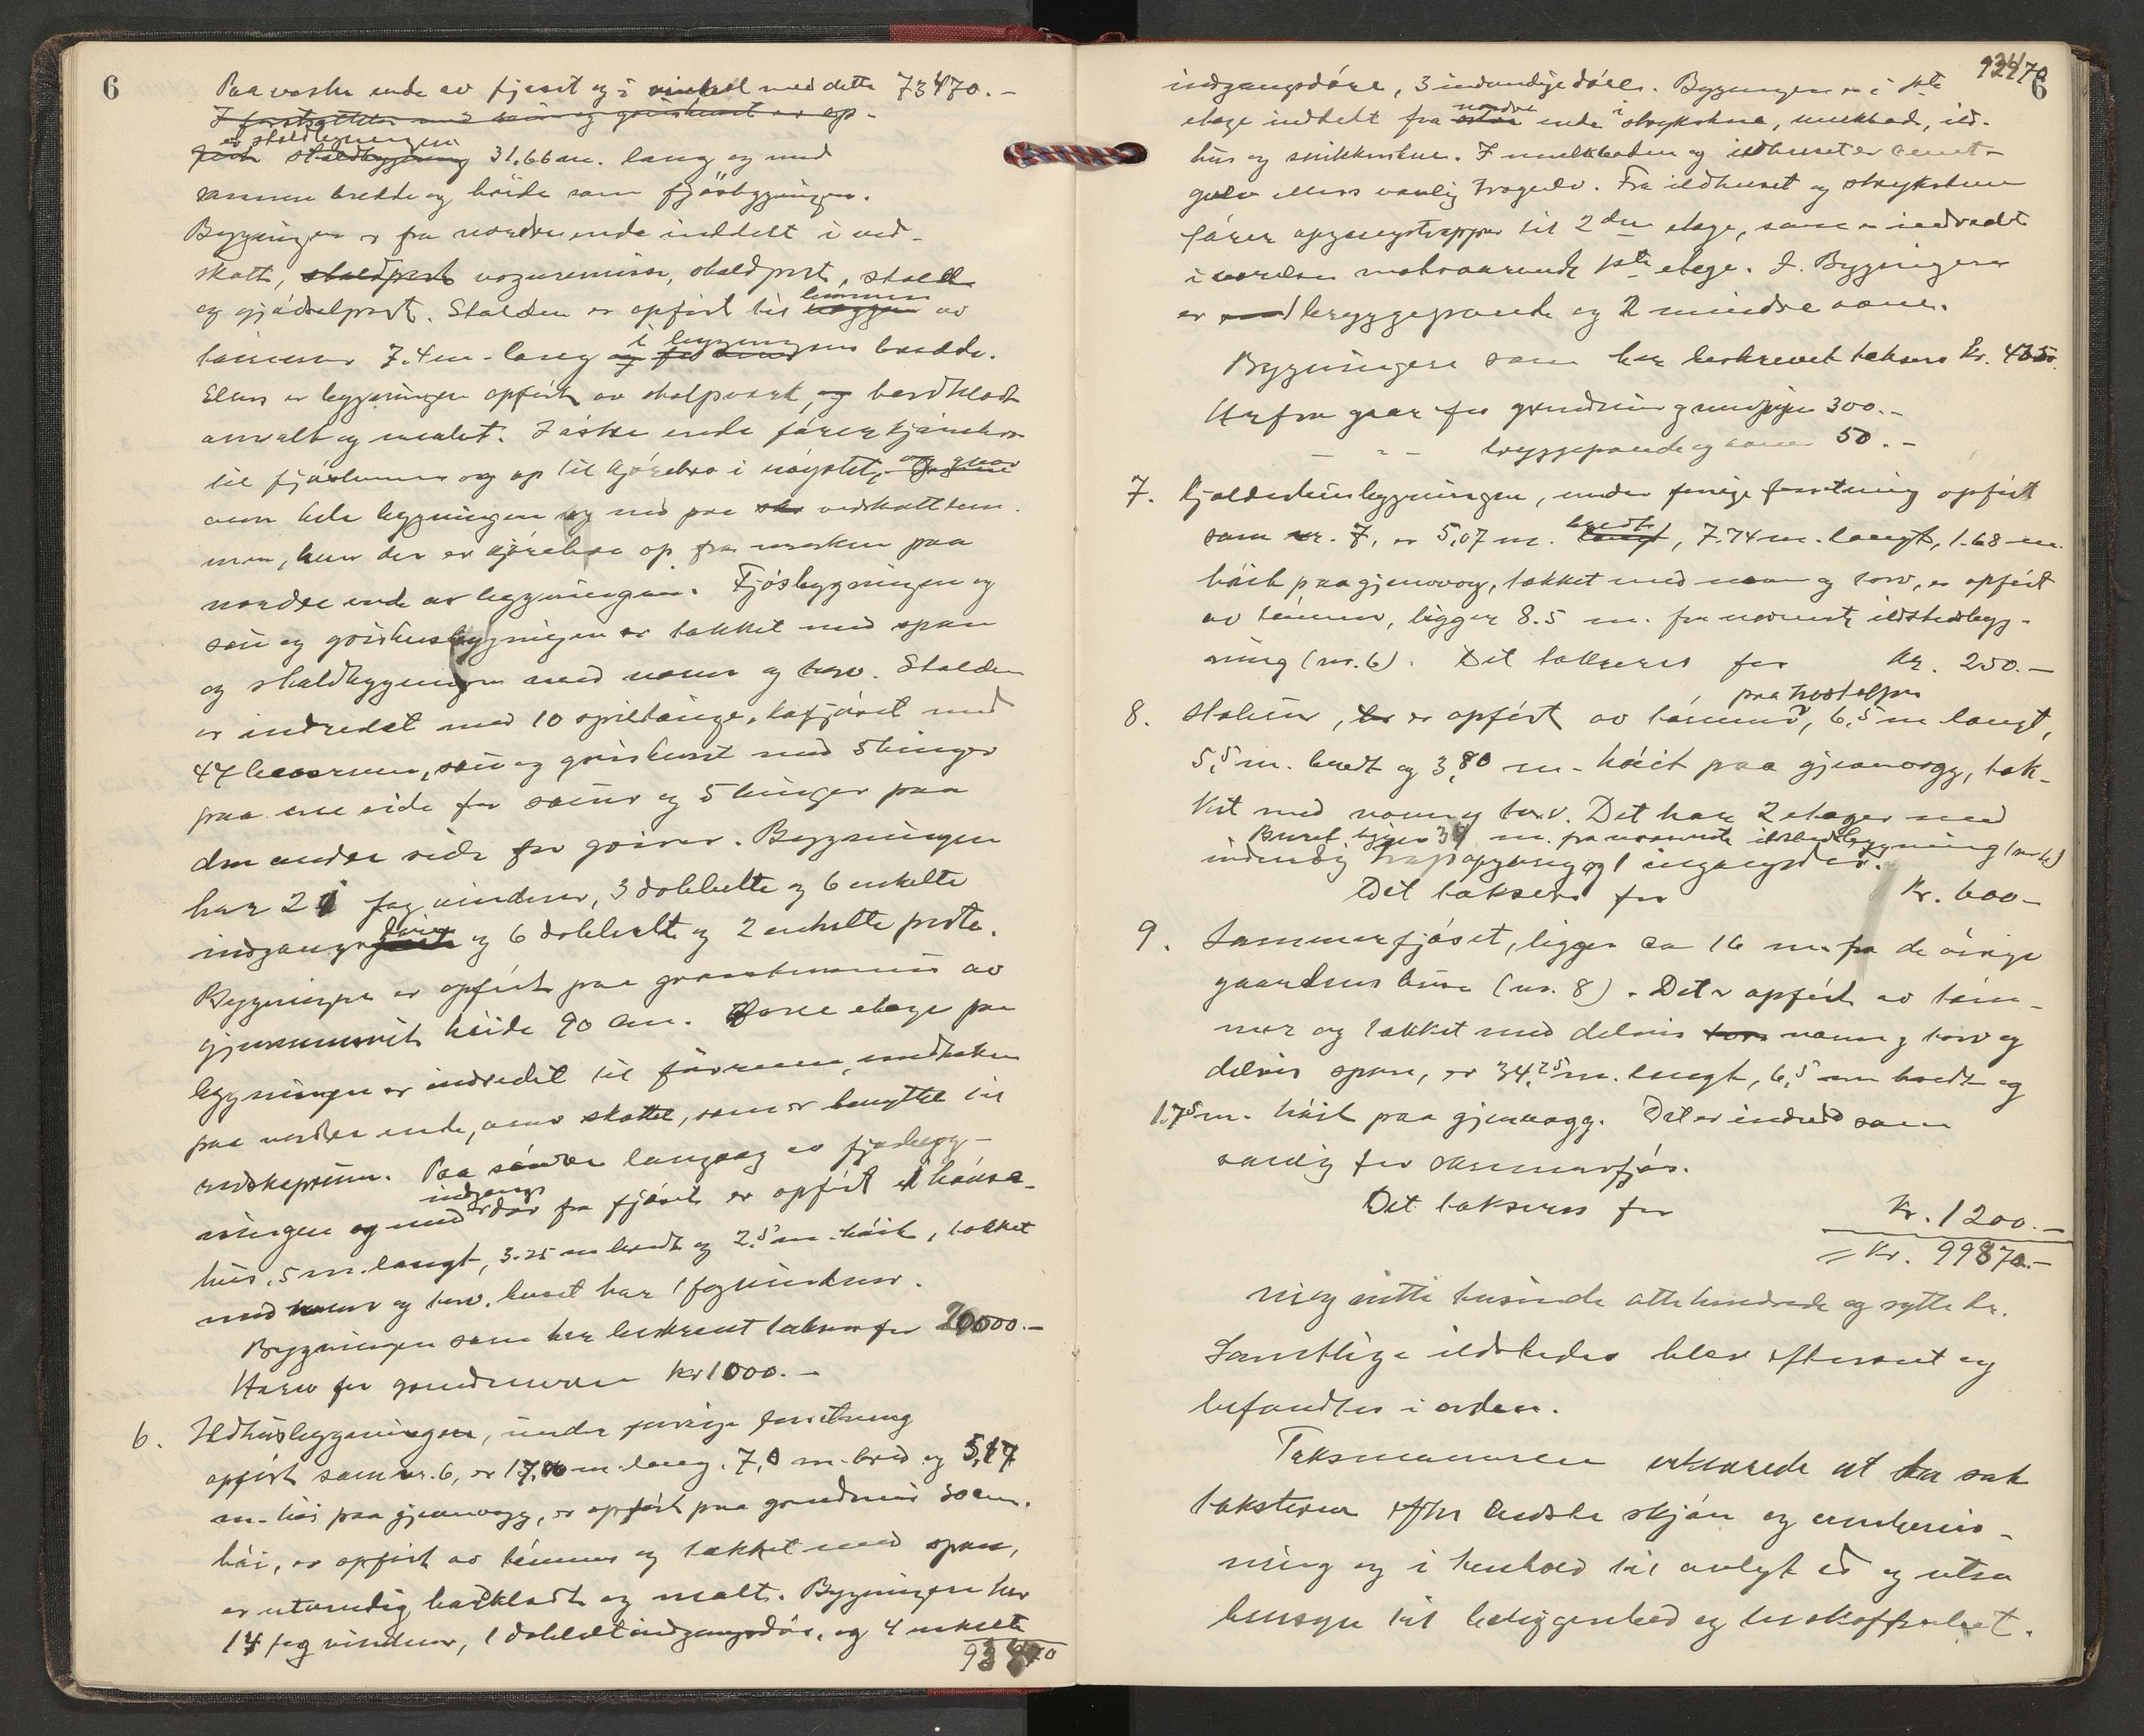 6
Paa vestre ende av fjøset og i vinkel med dette 73470.-
I fortsættelse med saue og grisehuset er op-
er staldbygningen
ført staldbygning 31.66 m. lang og med
samme bredde og høide som fjøsbygningen.
Bygningen er fra nordre ende inddelt i ved-
skott, staldport vognremisse, staldport, stald
og gjødselport. Stalden er opført til lemmen av
tømmer 7.4 m. lang i bygningens bredde.
Ellers er bygningen opført av stolpverk, og bordklædt
overalt og malet. I østre ende fører kjørebro
til fjøslemmen og op til kjørebro i møystet, og gaar
over hele bygningen og ned paa vedskottlem-
men, hvor der er kjørebro op fra marken paa
nordre ende av bygningen. Fjøsbygningen og
sau og grisehusbygningen er tækket med spon
og staldbygningen med never og torv. Stalden
er indredet med 10 spiltauge, kufjøset med
47 baasrum, sau og grisehuset med 5 binger
paa ene side for sauer og 5 binger paa
den andre side for griser. Bygningen
har 21 fag vinduer, 3 dobbelte og 6 enkelte
indgangsdører og 6 dobbelte og 2 enkelte porte.
Bygningen er opført paa graastensmur av
gjennemsnit høide 90 cm. Øvre etage paa
bygningen er indredet til forrum, undtaken
paa nordre ende, over skottet, som er benyttet til
redskapsrum. Paa søndre langvæg av fjøsbyg-
ningen og med indgangsdør fra fjøset er opført et hønse-
hus, 5 m. langt, 3.25 m bredt og 2,5 m. høit, tækket
med never og torv, huset har 1 fag vinduer.
Bygningen som her beskrevet takseres for 20000.-
Herav for grundmuren kr 1000.-
6. Ildhusbygningen, under forrige forretning
opført som nr. 6, er 17,00 m. lang. 7,0 m. bred og 5,17
m. høi paa gjenvegg, er opført paa grundmur 30 cm.
høi, er opført av tømmer og tækket med spon,
er utvendig bordklædt og malt. Bygningen har
14 fag vinduer, 1 dobbelt indgangsdør, og 4 enkelte
93470
93470
6
indgangsdøre, 3 indvendige døre. Bygningen er i 1ste
etage inddelt fra nordre ende i strykstue, melkbod, ild-
hus og snikkerstue. I melkboden og ildhuset er cement-
gulv ellers vanlig trægulv. Fra ildhuset og strykstuen
fører opgangstrapper til 2den etage, som er indredet
i værelser motsvarende 1ste etage. I Bygningen
er bryggepande og 2 mindre ovne.
Bygningen som her beskrevet takseres kr. 4350.
Herfra gaar for grundmur og muspipe 300.-
— " — bryggepande og ovner 50.-
7. Kjelderstuebygningen, under forrige forretning opført
som nr. 7, er 5,07 m. bredt, 7.74 m. langt, 1.68 m.
høit paa gjenvegg, tækket med never og torv, er opført
av tømmer, ligger 8.5 m. fra nærmeste ildstedsbyg-
ning (nr. 6). Det takseres for Kr. 250.-
paa træstolper
8. Stabur, er opført av tømmer, 6,5 m langt,
5,5 m. bredt og 3,80 m. høit paa gjenvegg, tæk-
ket med never og torv. Det har 2 etager med
Buret ligger 34 m. fra nærmeste ildstedbygning (nr 6)
indvendig trapopgang og 1 ingangsdør.
Det takseres for Kr. 600-
9. Sommerfjøset, ligger ca 16 m. fra de øvrige
gaardens huse (nr. 8). Det er opført av tøm-
mer og tækket med delvis torv never og torv og
delvis spon, er 34,25 m. langt, 6,5 m bredt og
1,75 m. høit paa gjenvegg. Det er indredet som
vanlig for sommerfjøs.
Det takseres for Kr. 1200.-
= Kr. 99870.-
nieg nitti tusinde otte hundrede og sytti kr.
Samtlige ildsteder blev efterseet og
befandtes i orden.
Taksmennene erklærede at ha sat
taksterne efter bedste skjøn og overbevis-
ning og i henhold til avlagt ed og uten
hensyn til beliggenhed og herskaffenhet.